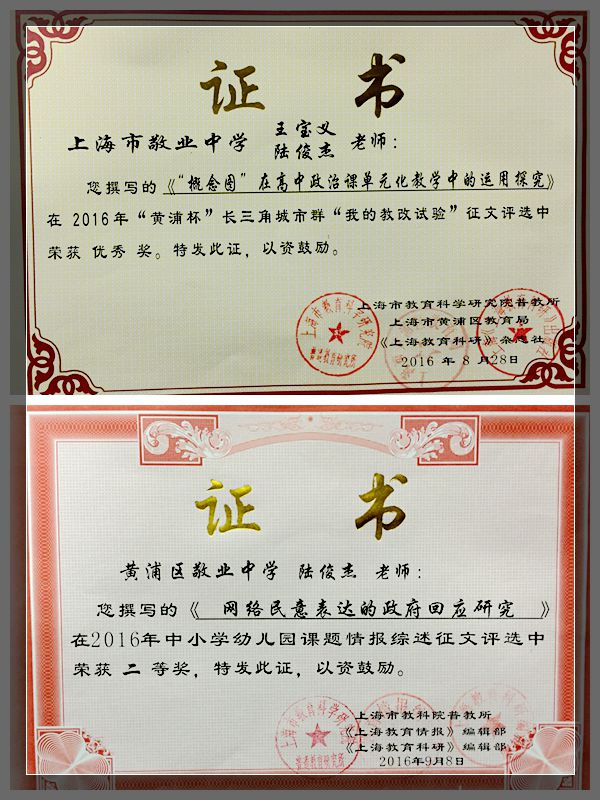 证 书
上海市敬业中学 王宝义 陆俊杰 老师：
您撰写的《“概念图”在高中政治课单元化教学中的运用探究》
在 2016年“黄浦杯”长三角城市群“我的教改试验”征文评选中
荣获 优秀 奖。特发此证，以资鼓励。
上海市教育科学研究院普教所
上海市黄浦区教育局
《上海教育科研》杂志社
2016 年 8 月28日
证 书
黄浦区敬业中学 陆俊杰 老师：
您撰写的《 网络民意表达的政府回应研究 》
在2016年中小学幼儿园课题情报综述征文评选中
荣获 二 等奖，特发此证，以资鼓励。
上海市教科院普教所
《上海教育情报》编辑部
《上海教育科研》编辑部
2016年9月8日